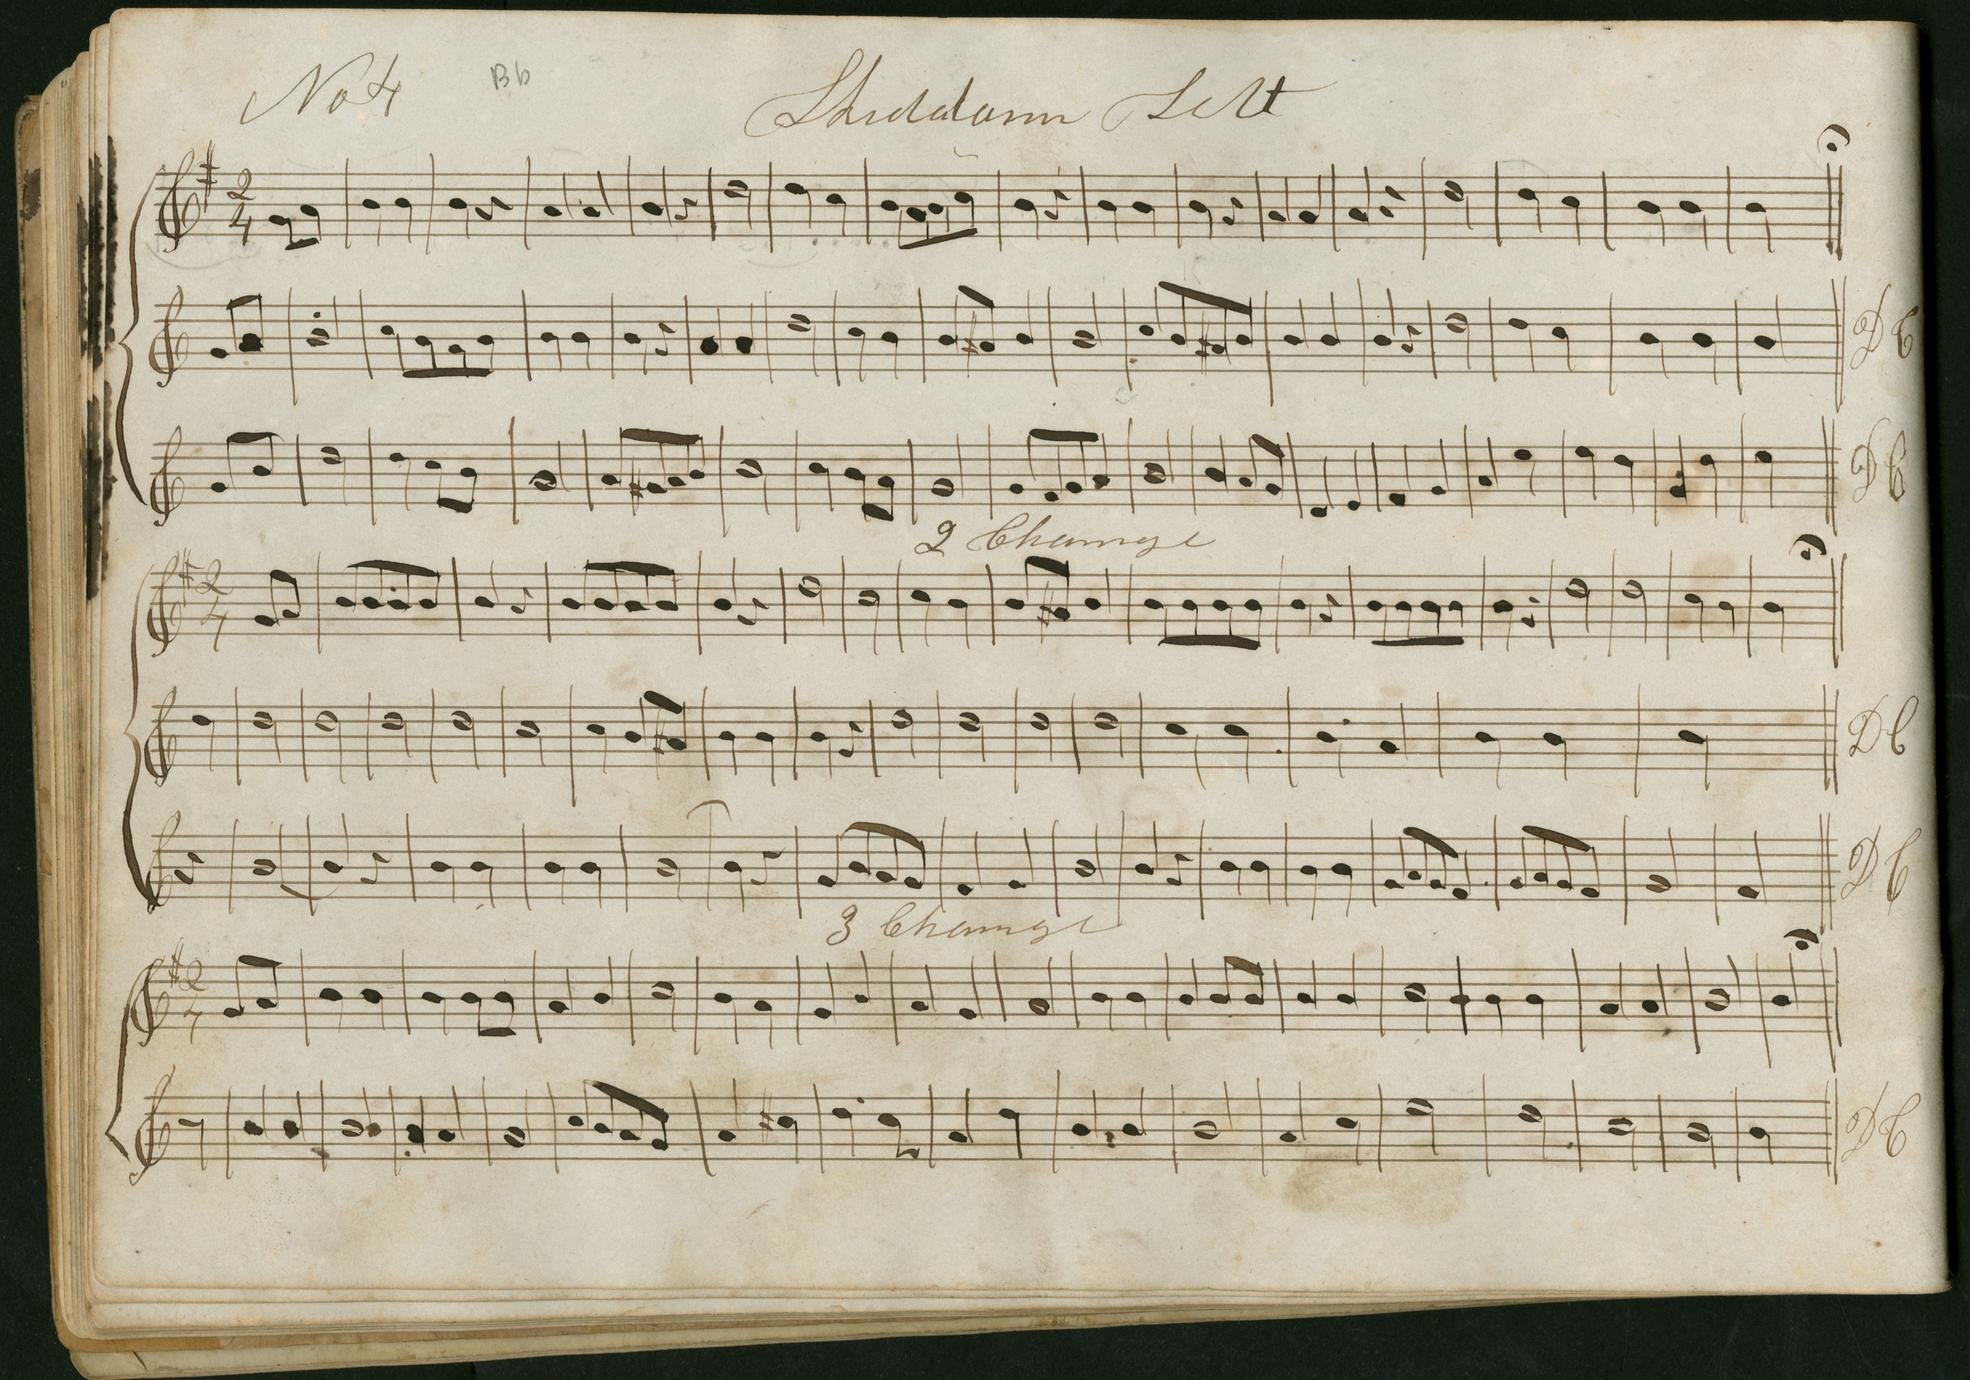 No 4 Bb Shiddam Sett
2
4
D C
D C
2 Change
2
4
D C
D C
3 Change
2
4
D C